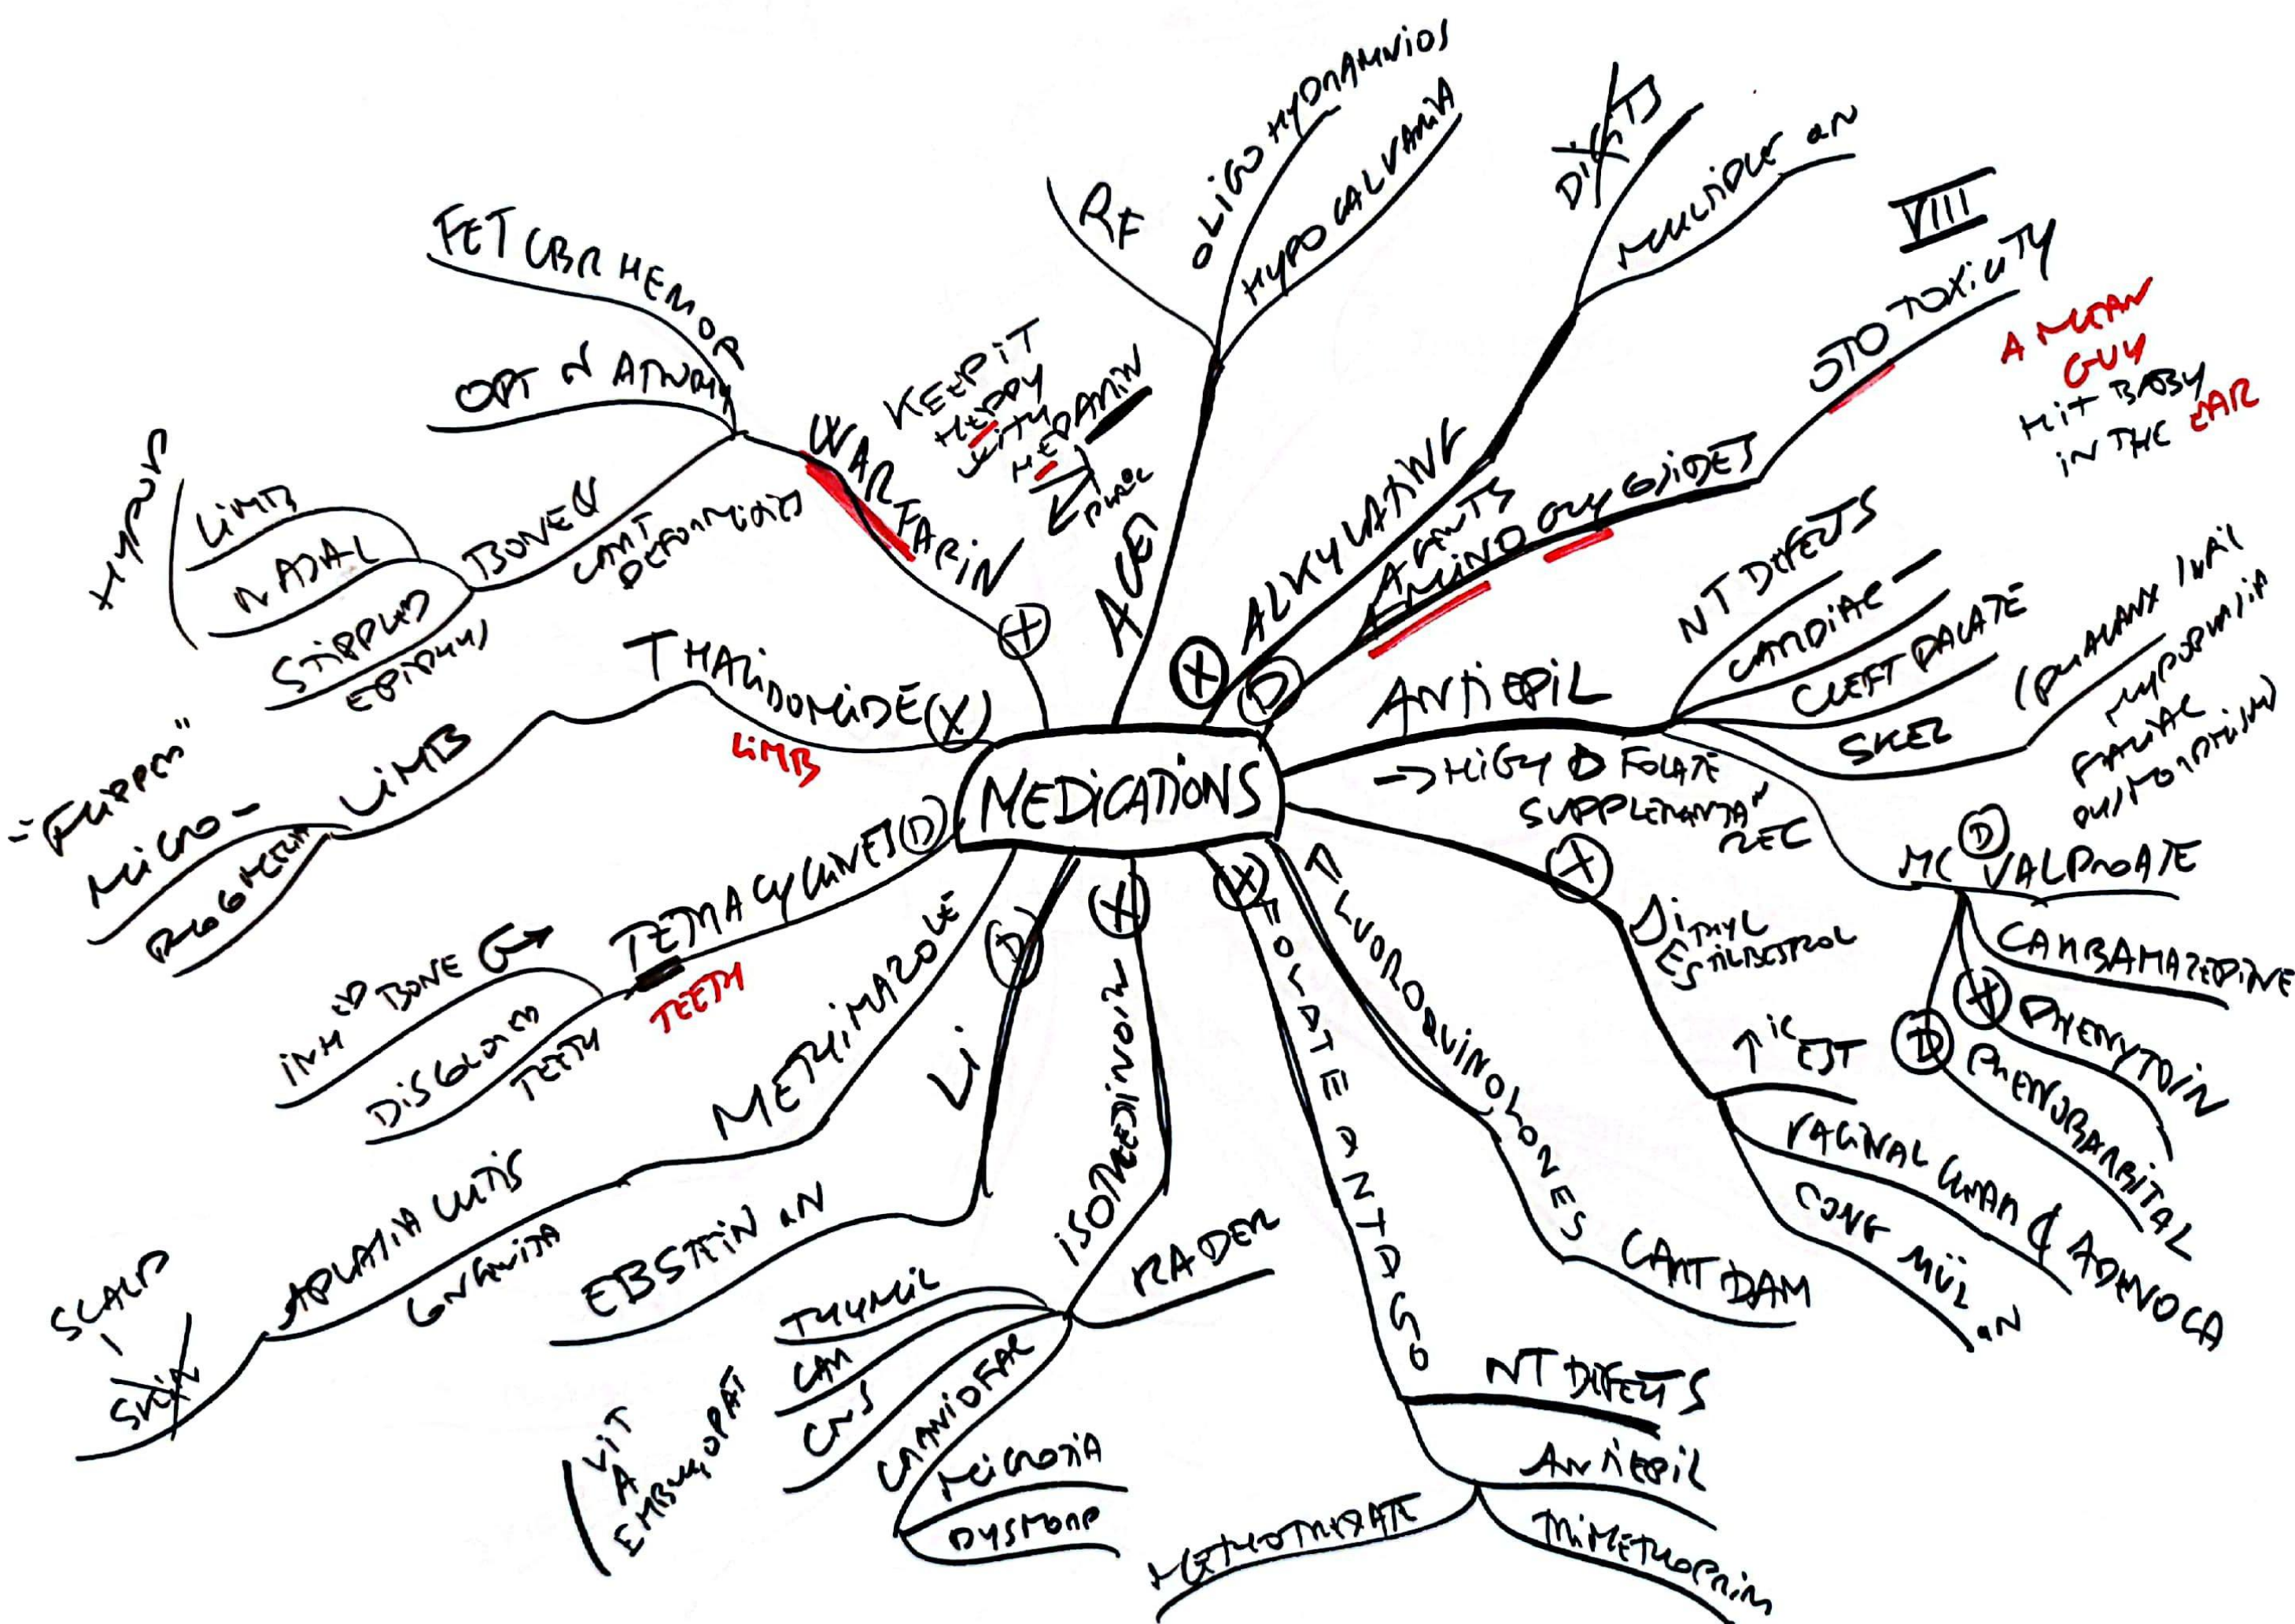 MEDICATIONS
ACEI
RF
OLIGOHYDRAMNIOS
HYPOCALVARIA
X
ALKYLATING
AGENTS
DIGITS
MULTIPLE AN
D
AMINO GLYCOSIDES
OTO TOXICITY
VIII
A MEAN
GUY
HIT BABY
IN THE EAR
ANTIEPIL
→ HIGH D FOLATE
SUPPLEMANTA^N
REC
NT DEFECTS
CARDIAC -
CLEFT PALATE
SKEL
(PHALANX / NAIL
HYPOPLASIA
FACIAL
DYSMORPHISM)
MC D VALPROATE
CARBAMAZEPINE
X PHENYTOIN
D PHENOBARBITAL
X
DIETHYL
ESTILBESTROL
↑ IC EST
VAGINAL CLEAR C ADENOCA
CONG MÜL AN
FLUOROQUINOLONES
CART DAM
X
FOLATE ANTAGO
NT DEFECTS
ANTIEPIL
TRIMETHOPRIM
METHOTREXATE
X
ISOTRETINOIN
RADER
THYMIC
CAR
CNS
CRANIOFAC
MICROTIA
DYSMORP
(VIT
A
EMBRYOPAT
D
Li
EBSTEIN AN
METHIMAZOLE
APLASIA CUTIS
CONGENITA
SCALP
SKIN
TETRACYCLINES (D)
TEETH
INH ED BONE G→
DISCOLORED
TEETH
THALIDOMIDE (X)
LIMB
LIMB
MICRO-
PHOCOMELIA
="FLIPPER"
X
WARFARIN
KEEP IT
HEPPY
WITH
HEPARIN
FET CBR HEMOR
OPT N ATROPHY
BONE &
CART
DEFORMITIES
HYPOP
LIMB
NASAL
STIPPLED
EPIPHYS